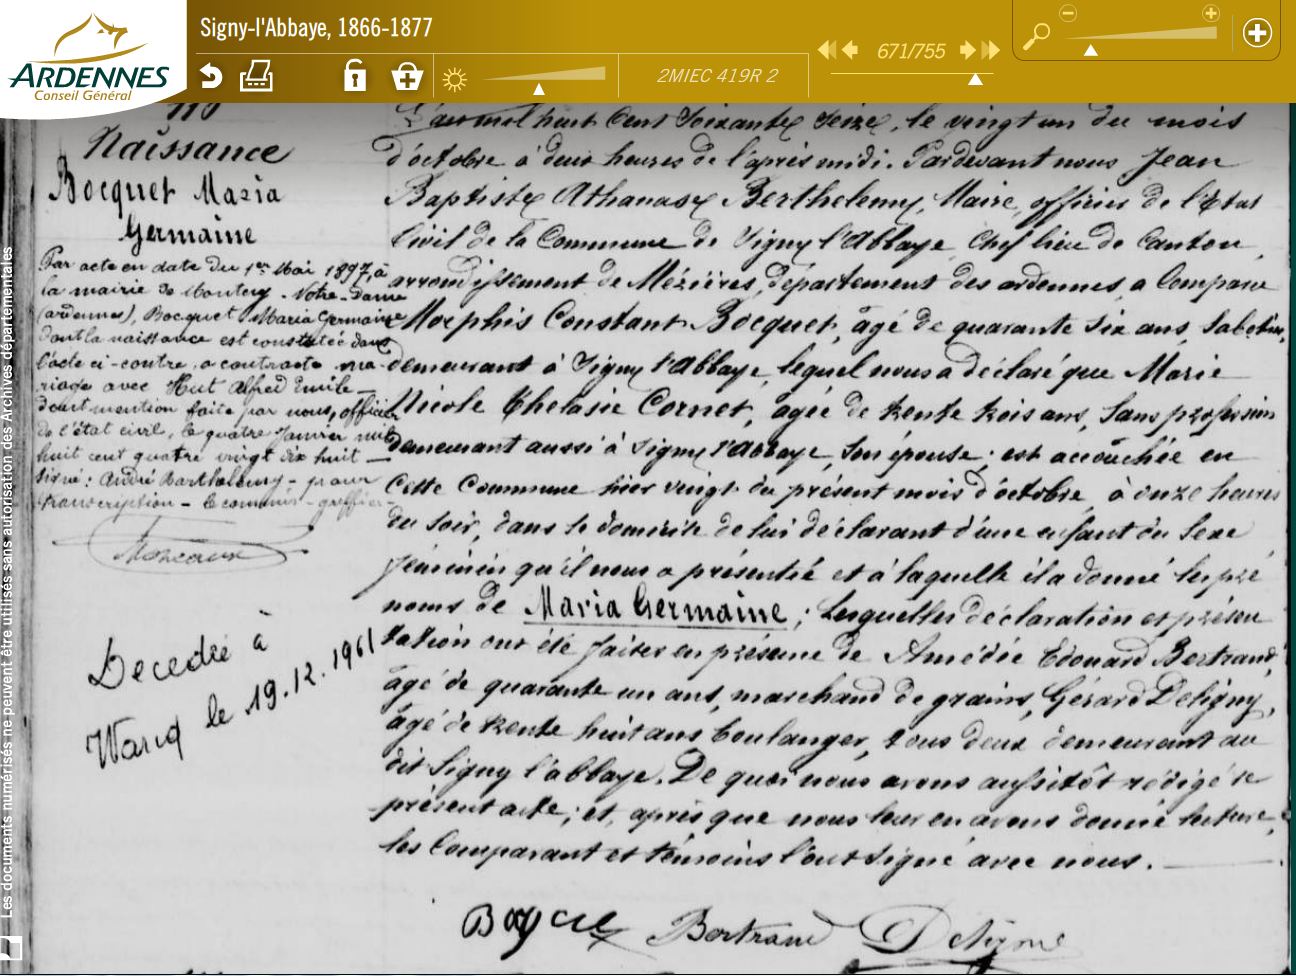 Signy-l'Abbaye, 1866-1877
ARDENNES
Conseil Général
2MIEC 419R 2
671/755
Les documents numérisés ne peuvent être utilisés sans autorisation des Archives départementales
Naissance
Bocquet Maria
Germaine
Par acte en date du 1er Mai 1897, à
la mairie de Montcy-Notre-Dame
(ardennes), Bocquet Maria Germaine
dont la naissance est constatée dans
l'acte ci-contre a contracté ma-
riage avec Hut Alfred Emile
dont mention faite par nous, officier
de l'état civil, le quatre Janvier mil
huit cent quatre vingt dix huit
signé : André Barthélemy - pour
transcription - le commis-greffier -
Decedée à
Warcq le 19.12.1961
L'an mil huit Cent Soixante Seize, le vingt un du mois
d'octobre à deux heures de l'après midi. Pardevant nous Jean
Baptiste Athanase Berthelemy, Maire, officier de l'Etat
Civil de la Commune de Signy l'Abbaye, Chef lieu de Canton,
arrondissement de Mézières, département des ardennes, a Comparu
Constant Bocquet, âgé de quarante six ans, Sabotier,
demeurant à Signy l'Abbaye, lequel nous a déclaré que Marie
Nicole Cornet, âgée de trente trois ans, Sans profession
demeurant aussi à Signy l'Abbaye, Son épouse, est accouchée en
Cette Commune hier vingt du présent mois d'octobre, à onze heures
du Soir, dans le domicile de lui déclarant d'une enfant du Sexe
féminin qu'il nous a présenté et à laquelle il a donné les pré
noms de Maria Germaine ; Lesquelles déclaration et présen
tation ont été faites en présence de Amédée Edouard Bertrand,
âgé de quarante un ans, marchand de grains, Gérard Deligny,
âgé de trente huit ans boulanger, tous deux demeurant au
dit Signy l'abbaye. De quoi nous avons aussitôt rédigé le
présent acte ; et, après que nous leur en avons donné lecture,
les Comparant et témoins l'ont signé avec nous.
Bertrand